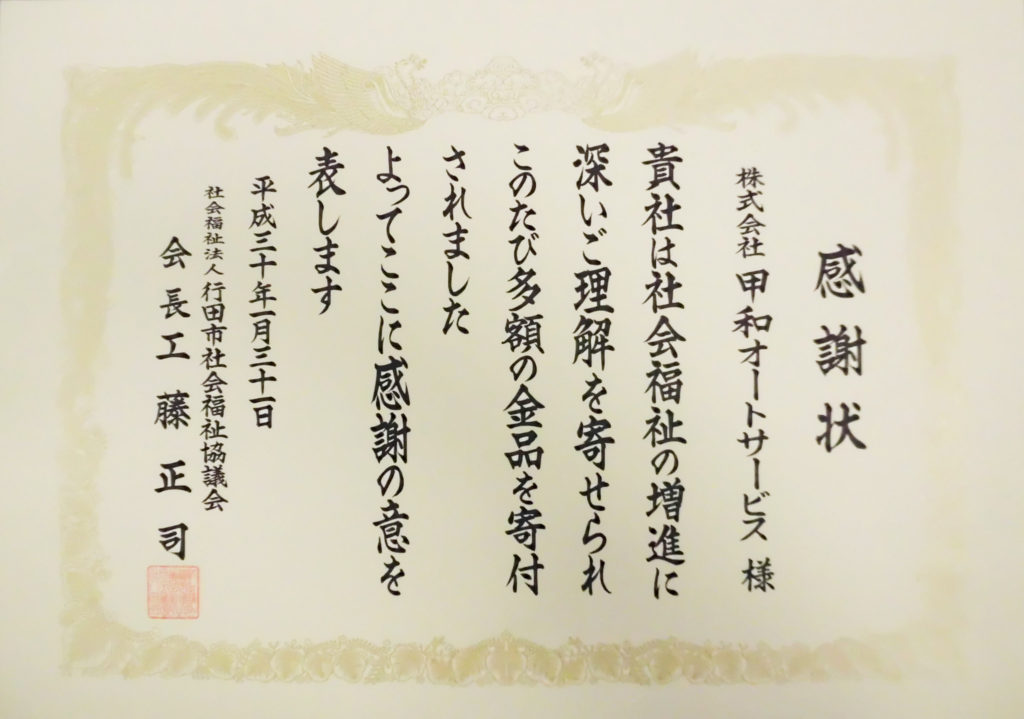 感謝状
株式会社 甲和オートサービス 様
貴社は社会福祉の増進に
深いご理解を寄せられ
このたび多額の金品を寄付
されました
よってここに感謝の意を
表します
平成三十年一月三十一日
社会福祉法人 行田市社会福祉協議会
会長 工藤正司